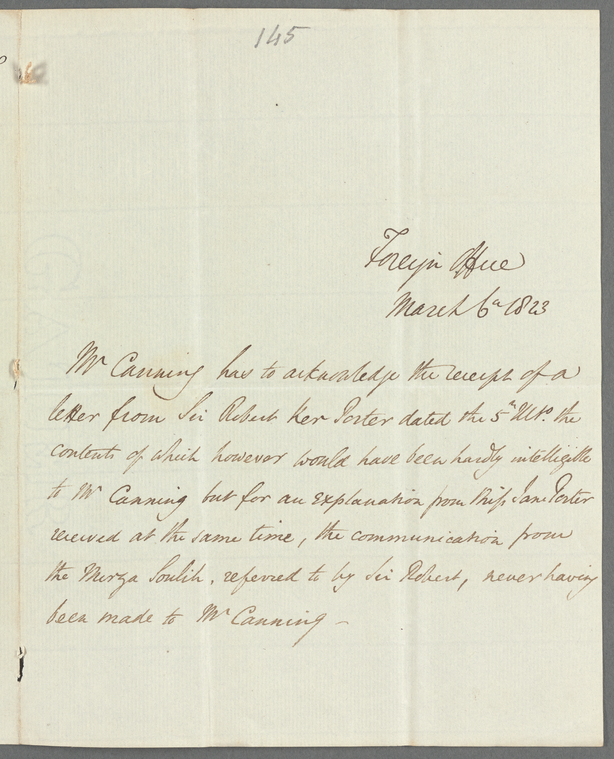 145
Foreign Office
March 6th 1823
Mr Canning has to acknowledge the receipt of a
letter from Sir Robert Ker Porter dated the 5th Ulto. the
contents of which however would have been hardly intelligible
to Mr Canning but for an explanation from Miss Jane Porter
received at the same time, the communication from
the Mirza Soulih, referred to by Sir Robert, never having
been made to Mr Canning —